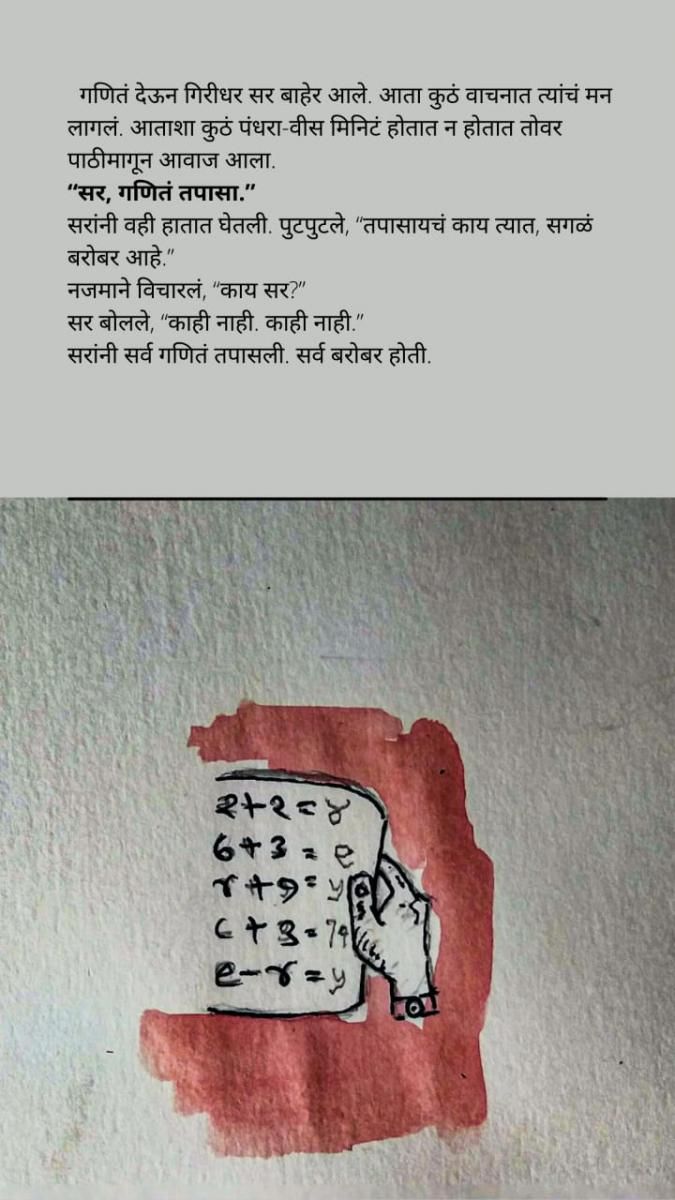 गणितं देऊन गिरीधर सर बाहेर आले. आता कुठं वाचनात त्यांचं मन
लागलं. आताशा कुठं पंधरा-वीस मिनिटं होतात न होतात तोवर
पाठीमागून आवाज आला.
“सर, गणितं तपासा.”
सरांनी वही हातात घेतली. पुटपुटले, “तपासायचं काय त्यात, सगळं
बरोबर आहे.”
नजमाने विचारलं, “काय सर?”
सर बोलले, “काही नाही. काही नाही.”
सरांनी सर्व गणितं तपासली. सर्व बरोबर होती.
२+२=४
६+३=९
४+१=५
८+३=११
९-४=५